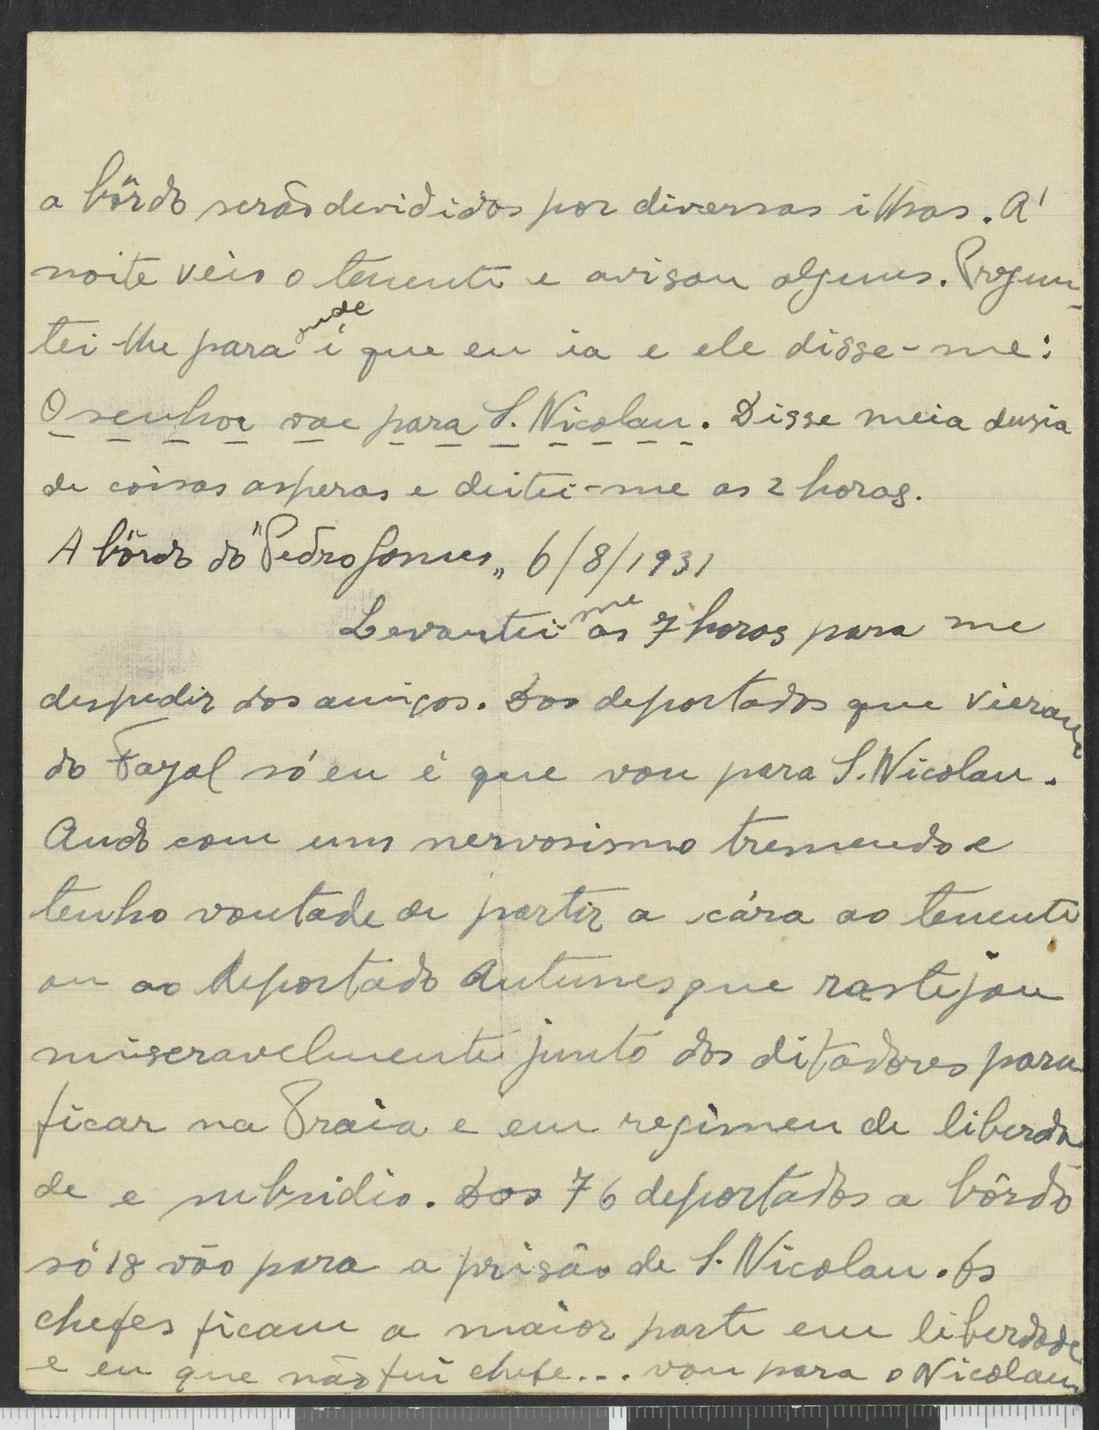 a bôrdo serão devididos por diversas ilhas. Á
noite veio o tenente e avisou alguns. Pregun-
tei-lhe para onde é que eu ia e ele disse-me:
O senhor vae para S. Nicolau. Disse meia dusia
de coisas asperas e deitei-me as 2 horas.
A bôrdo do "Pedro Gomes„ 6/8/1931
Levantei-me as 7 horas para me
despedir dos amigos. Dos deportados que vieram
do Fayal só eu é que vou para S. Nicolau.
Ando com um nervosismo tremendo e
tenho vontade de partir a cára ao tenente
ou ao deportado Antunes que rastejou
miseravelmente junto dos ditadores para
ficar na Praia e em regimen de liberda-
de e subsidio. Dos 76 deportados a bôrdo
só 18 vão para a prisão de S. Nicolau. Os
chefes ficam a maior parte em liberdade
e eu que não fui chefe... vou para o Nicolau